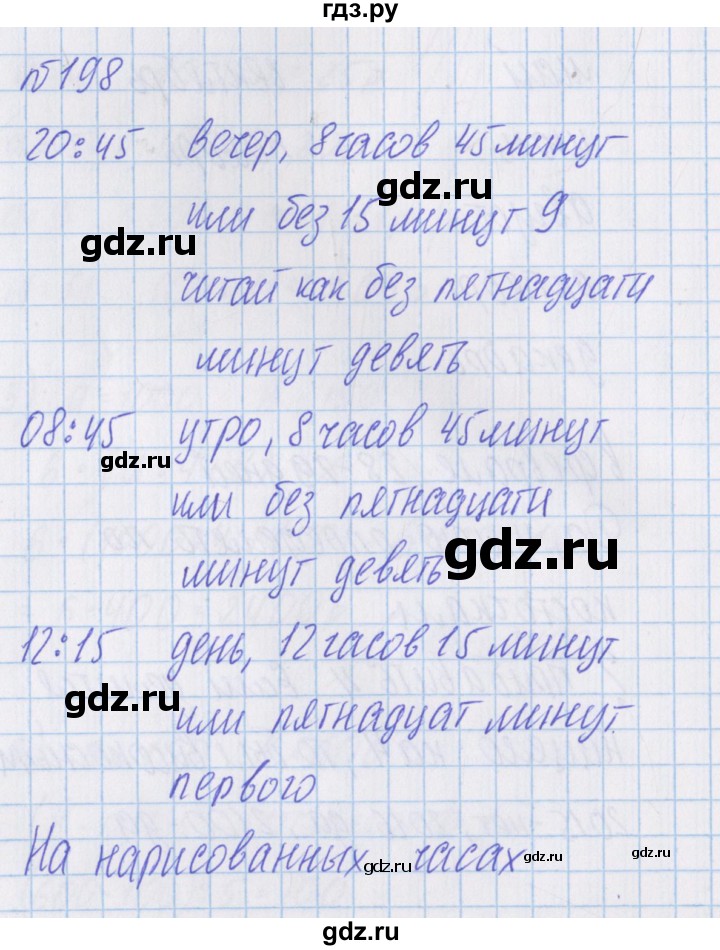 гдз.ру
№198
20:45 вечер, 8 часов 45 минут
gdz.ru
или без 15 минут 9
gdz.ru
читай как без пятнадцати
минут девять
08:45 утро, 8 часов 45 минут
gdz.ru
или без пятнадцати
gdz.ru
минут девять
12:15 день, 12 часов 15 минут
gdz.ru
или пятнадцат минут
первого
На нарисованных часах
gdz.ru gdz.ru gdz.ru
gdz.ru